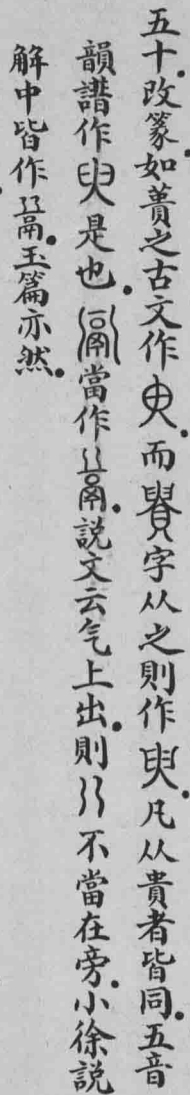 五十改篆如蕢之古文作臾而貴字从之則作𠀐凡从貴者皆同五音
韻譜作𠀐是也䰜當作鬲說文云气上出則不當在旁小徐說
解中皆作鬲玉篇亦然